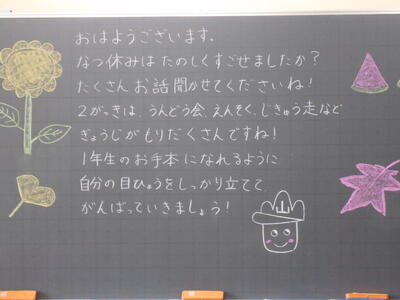 おはようございます。
なつ休みは たのしくすごせましたか？
たくさん お話 聞かせてくださいね！
2がっきは、うんどう会、えんそく、じきゅう走など
ぎょうじが もりだくさんですね！
1年生の お手本 に なれるように
自分の 目ひょうを しっかり 立てて、
がんばって いきましょう！
山